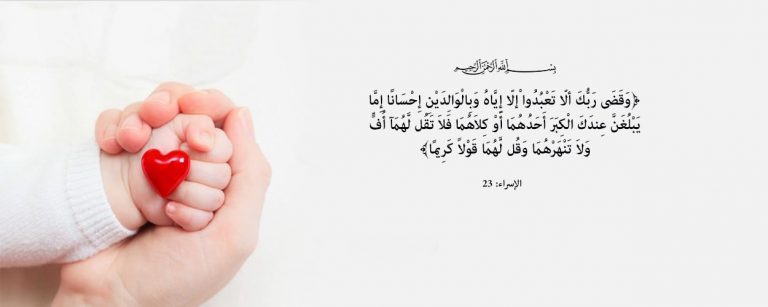 بسم الله الرحمن الرحيم
﴿وَقَضَى رَبُّكَ أَلّا تَعْبُدُواْ إِلّا إِيَّاهُ وَبِالْوَالِدَيْنِ إِحْسَانًا إِمَّا
يَبْلُغَنَّ عِندَكَ الْكِبَرَ أَحَدُهُمَا أَوْ كِلاَهُمَا فَلاَ تَقُل لَّهُمَآ أُفٍّ
وَلاَ تَنْهَرْهُمَا وَقُل لَّهُمَا قَوْلاً كَرِيمًا﴾
الإسراء: 23